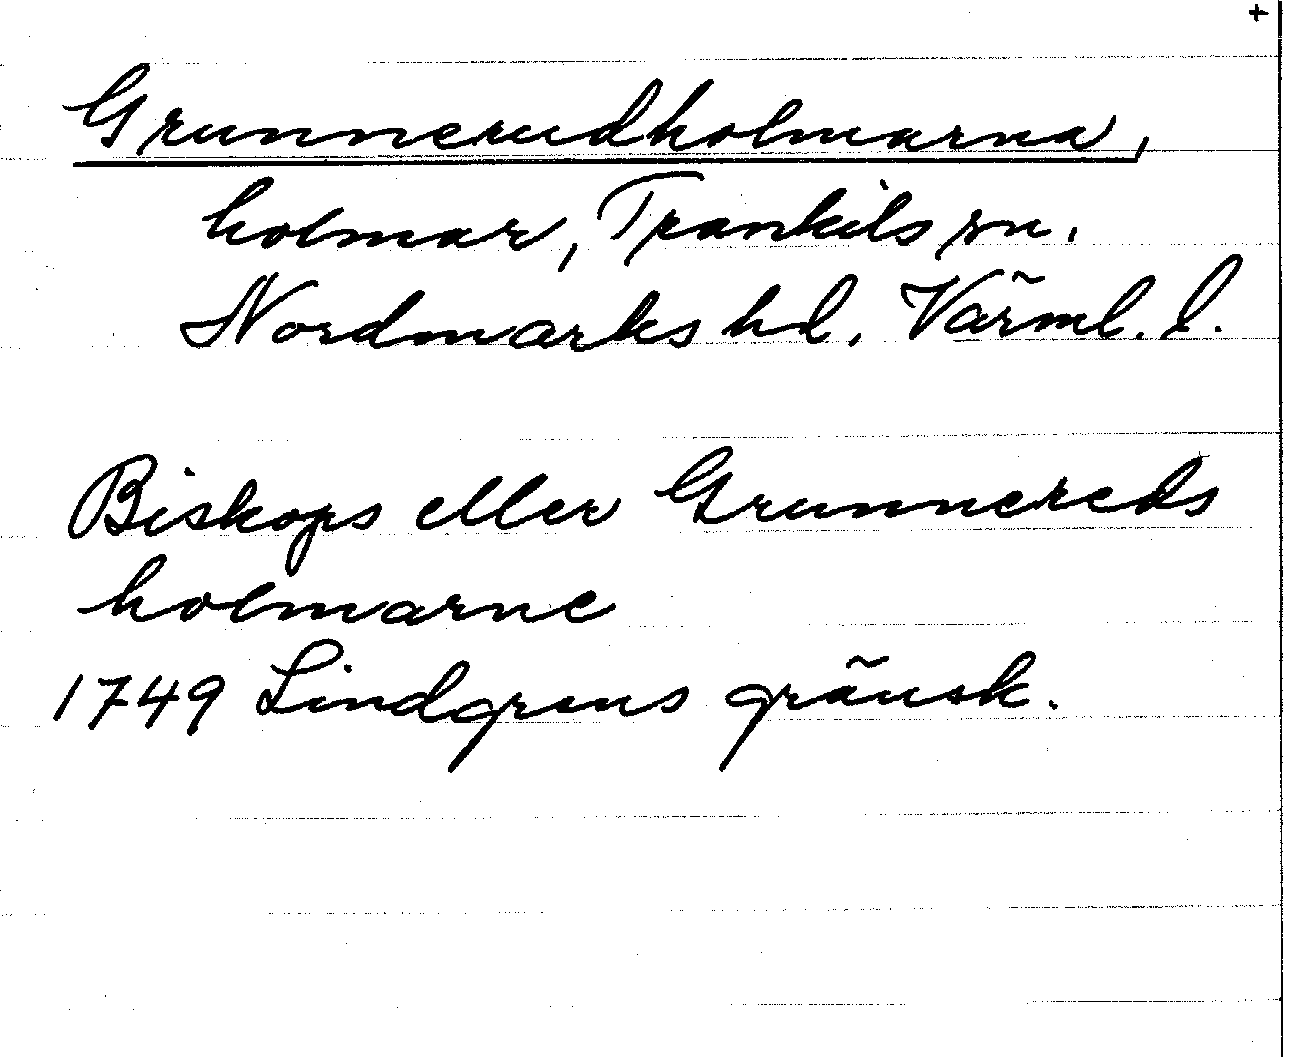 +
Grunnerudholmarna,
holmar, Trankils sn.
Nordmarks hd, Värml. l.
Biskops eller Grunnereds
holmarne
1749 Lindgrens gränsk.